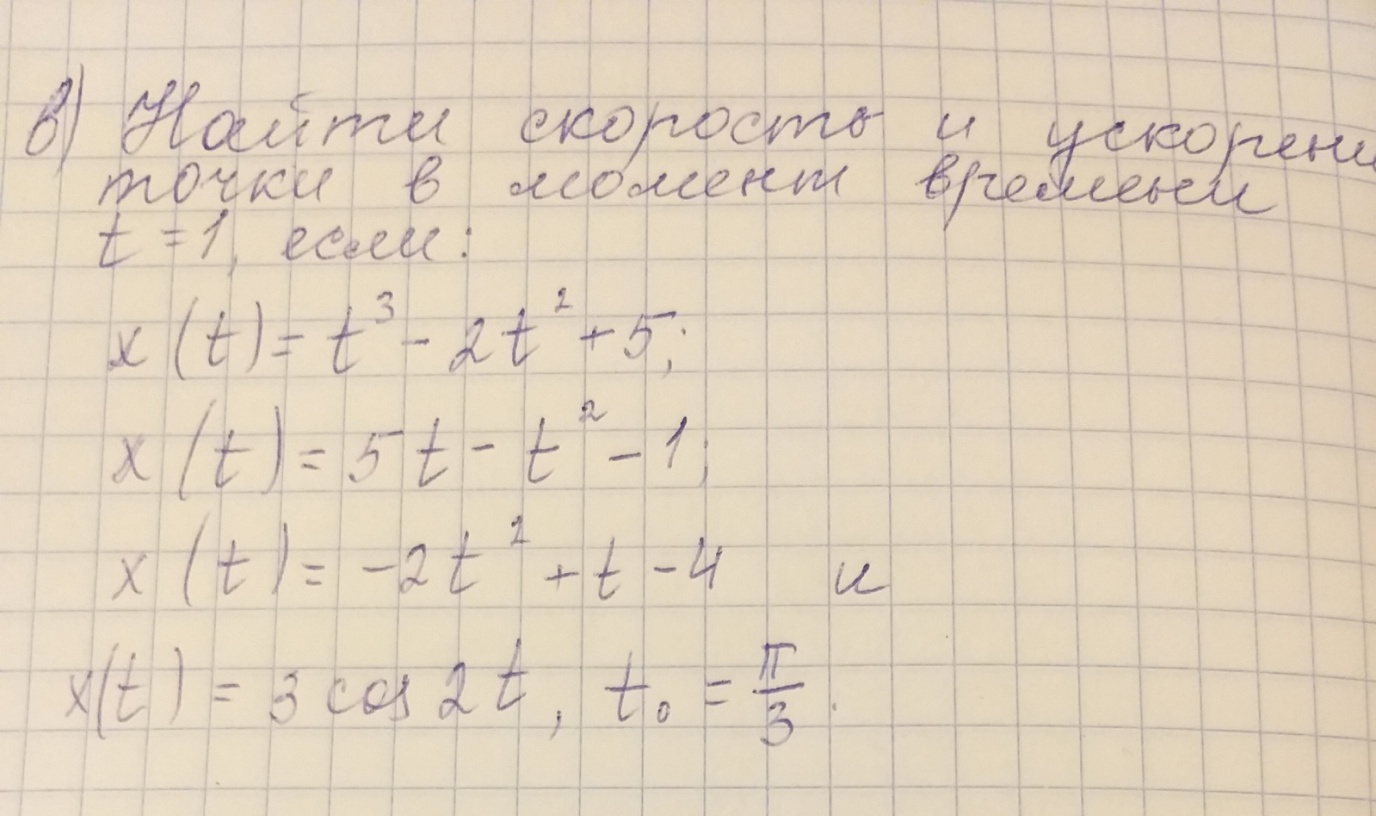 в) Найти скорость и ускорени
точки в момент времени
t = 1, если:
x (t) = t³ - 2t² + 5;
x (t) = 5t - t² - 1;
x (t) = -2t² + t - 4 и
x(t) = 3 cos 2t, t₀ = π/3.